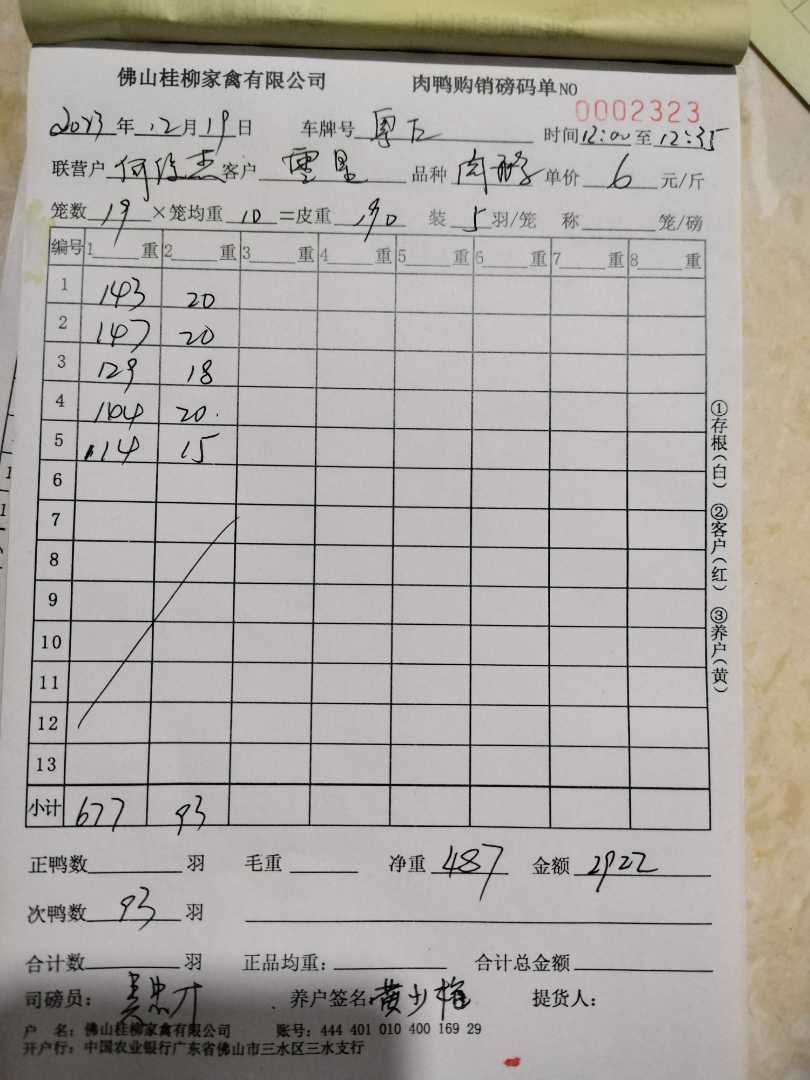 佛山桂柳家禽有限公司 肉鸭购销磅码单 NO 0002323
2023年12月19日 车牌号 时间12:00至12:35
联营户 何 杰 客户 品种 肉鸭 单价 6 元/斤
笼数 19 ×笼均重 10 =皮重 190 装 5 羽/笼 称 笼/磅
编号 1 重 2 重 3 重 4 重 5 重 6 重 7 重 8 重
1 143 20
2 147 20
3 129 18
4 144 20
5 114 15
6
7
8
9
10
11
12
13
小计 677 93
正鸭数 羽 毛重 净重 487 金额 2922
次鸭数 93 羽
合计数 羽 正品均重: 合计总金额
司磅员: 吴忠才 养户签名 黄少 提货人:
户 名: 佛山桂柳家禽有限公司 账号: 444 401 010 400 169 29
开户行: 中国农业银行广东省佛山市三水区三水支行
①存根(白) ②客户(红) ③养户(黄)